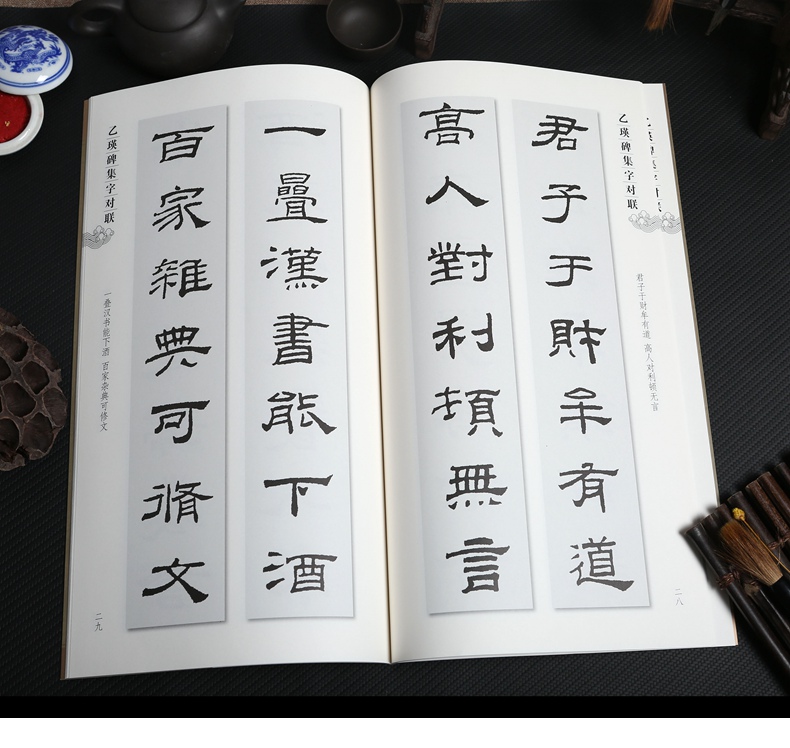 乙瑛碑集字对联
君子于财牟有道 高人对利顿无言
君子于財牟有道
高人對利頓無言
二八
一疊漢書能下酒
百家雜典可脩文
乙瑛碑集字对联
一叠汉书能下酒 百家杂典可修文
二九